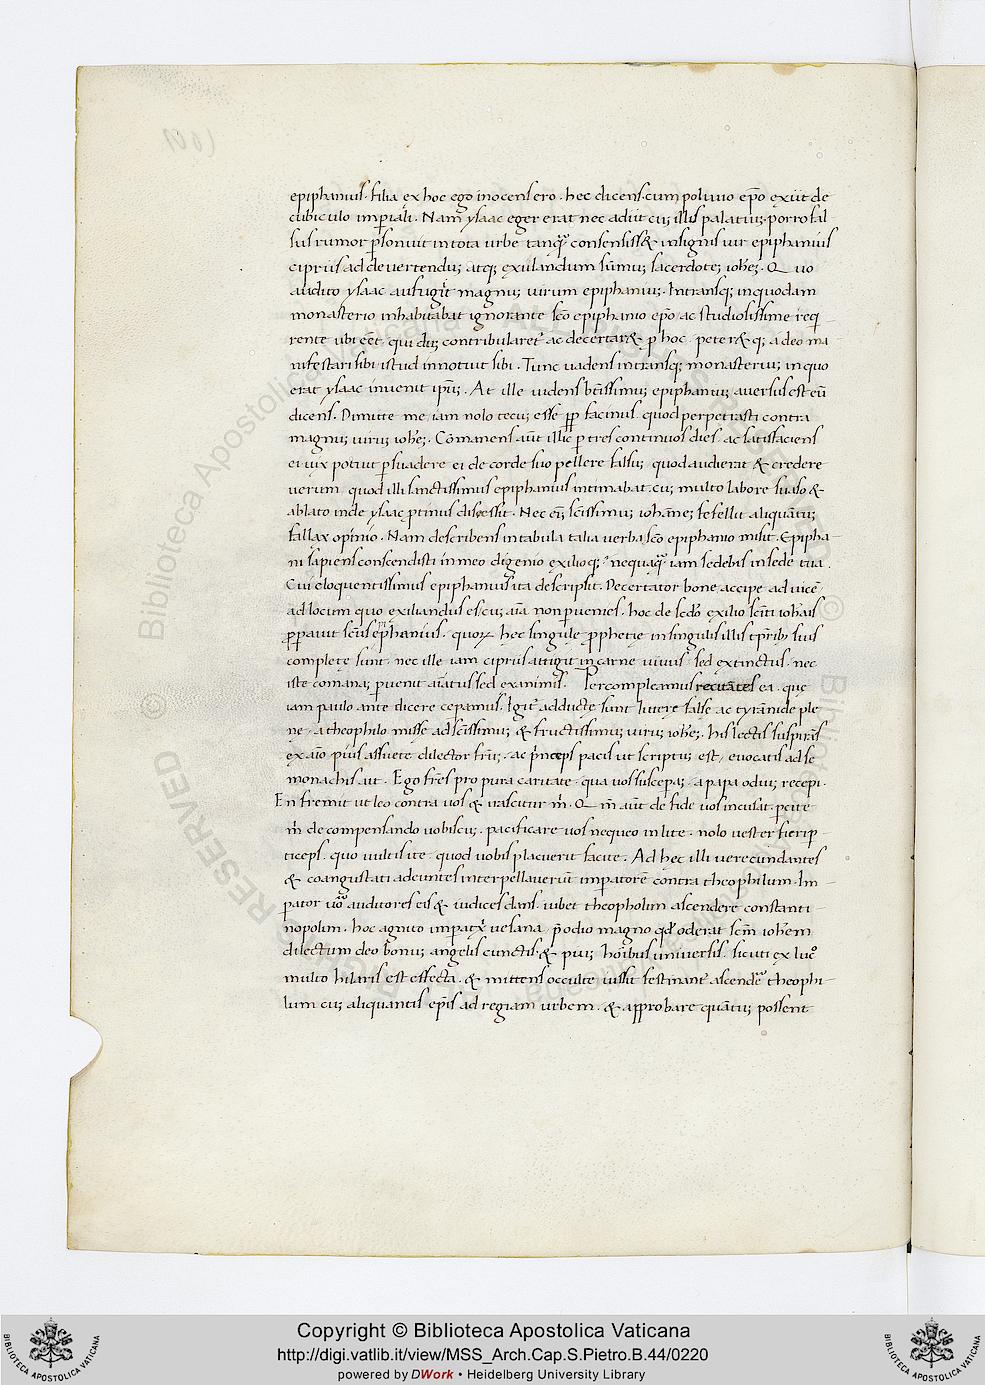 epiphanius. filia ex hoc ego inocens ero. hec dicens. cum polinio epo exiit de
cubiculo imperiali. Nam ysaac eger erat nec adiit cu; illis palatiu;. porro fal
sus rumor psonuit in tota urbe tanq; consensiss& insignis uir epiphanius
ciprius ad deuertendu; atq; exulandum sumu; sacerdote; iohe;. Q uo
audito ysaac aufugit magnu; uirum epiphaniu;. Intransq; in quodam
monasterio inhabitabat ignorante sco epiphanio epo ac studiosissime req
rente ubi eet. qui du; contribularet ac decertar& p hoc. peter& q; a deo ma
nifestari sibi istud innotuit sibi. Tunc uadens intransq; monasteriu; in quo
erat ysaac inuenit ipm;. At ille uidens btissimu; epiphaniu; auersus est eu
dicens. Dimitte me, iam nolo tecu; esse pp facinus. quod perpetrasti contra
magnu; uiru; iohe;. Comanens aut illic p tres continuos dies. ac satisfaciens
ei uix potuit psuadere ei de corde suo pellere falsu; quod audierat & credere
uerum. quod illi sanctissimus epiphanius intimabat. cu; multo labore suaso &
ablato inde ysaac ptinus discessit. Nec ei; scissimu; iohane; fefellit aliquatu;
fallax opinio. Nam describens in tabula talia uerba sco epiphanio misit. Epipha-
ni sapiens conscendisti in meo digenio exilioq; nequaq; iam sedebis in sede tua.
Cui eloquentissimus epiphanius ita descripsit. Decertator bone accipe ad uice
ad locum quo exiliandus es, cu; aia non puenies. hoc de scdo exilio scti iohais
ppauit scus epiphanius. quor hec singule pphetie in singulis illis tprib; suis
complete sunt. nec ille iam ciprus attigit in carne uiuus sed extinctus. nec
iste comana; puenit aiatus sed exanimis. Percompleamus recitates ea. que
iam paulo ante dicere cepamus. Igit adducte sunt littere false ac tyranide ple
ne. a theophilo misse ad scissimu; & fructissimu; uiru; iohe;. his lectis suspirans
ex aio pius assuete dilector frum;. ac princeps pacis ut scriptu; est, euocatis ad se
monachis ait. Ego fres pro pura caritate. qua uos suscepi;. a papa odiu; recepi.
En fremit ut leo contra uos & irascitur m. Q m aut de fide uos incusat. parcite
m de compensando uobiscu;. pacificare uos nequeo in lite. nolo uester fieri p-
ticeps. quo uultis ite. quod uobis placuerit facite. Ad hec illi uerecundantes
& coangustati adeuntes interpellauerut imperatore contra theophilum. Im-
perator uo auditores eis & iudices dans. iubet theopholum ascendere constanti-
nopolim. hoc agnito imperatx uesana. p odio magno qd oderat scm iohem
dilectum deo bonu;. angelis cunctis. & piu; hoibus uniuersis. sicuti ex luc
multo hilaris est effecta. & mittens occulte iussit festinant ascende theophi-
lum cu; aliquantis epis ad regiam urbem. & approbare quatu; possent
Copyright © Biblioteca Apostolica Vaticana
http://digi.vatlib.it/view/MSS_Arch.Cap.S.Pietro.B.44/0220
powered by DWork • Heidelberg University Library